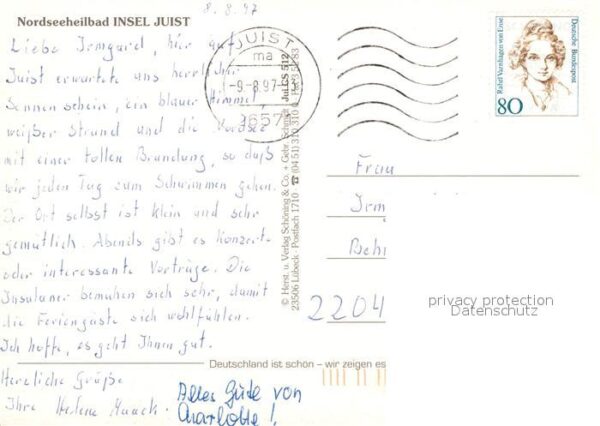 8.8.97
Nordseeheilbad INSEL JUIST
Liebe Irmgard, hier auf
Juist erwartete uns herrlicher
Sonnenschein, ein blauer Himmel,
weißer Strand und die Nordsee
mit einer tollen Brandung, so daß
wir jeden Tag zum Schwimmen gehen.
Der Ort selbst ist klein und sehr
gemütlich. Abends gibt es Konzerte
oder interessante Vorträge. Die
Insulaner bemühen sich sehr, damit
die Feriengäste sich wohlfühlen.
Ich hoffe, es geht Ihnen gut.
Herzliche Grüße
Ihre Helene
Alles Gute von
Charlotte!
JUIST
ma
-9.-8.97-
26571
© Herst. u. Verlag Schöning & Co. + Gebr. Schmidt Jui GS 512
23506 Lübeck · Postfach 1710 ☎ (04 51) 310 310
Deutsche Bundespost
Rahel Varnhagen von Ense
80
Frau
Irm
Behr
2204
privacy protection
Datenschutz
Deutschland ist schön – wir zeigen es